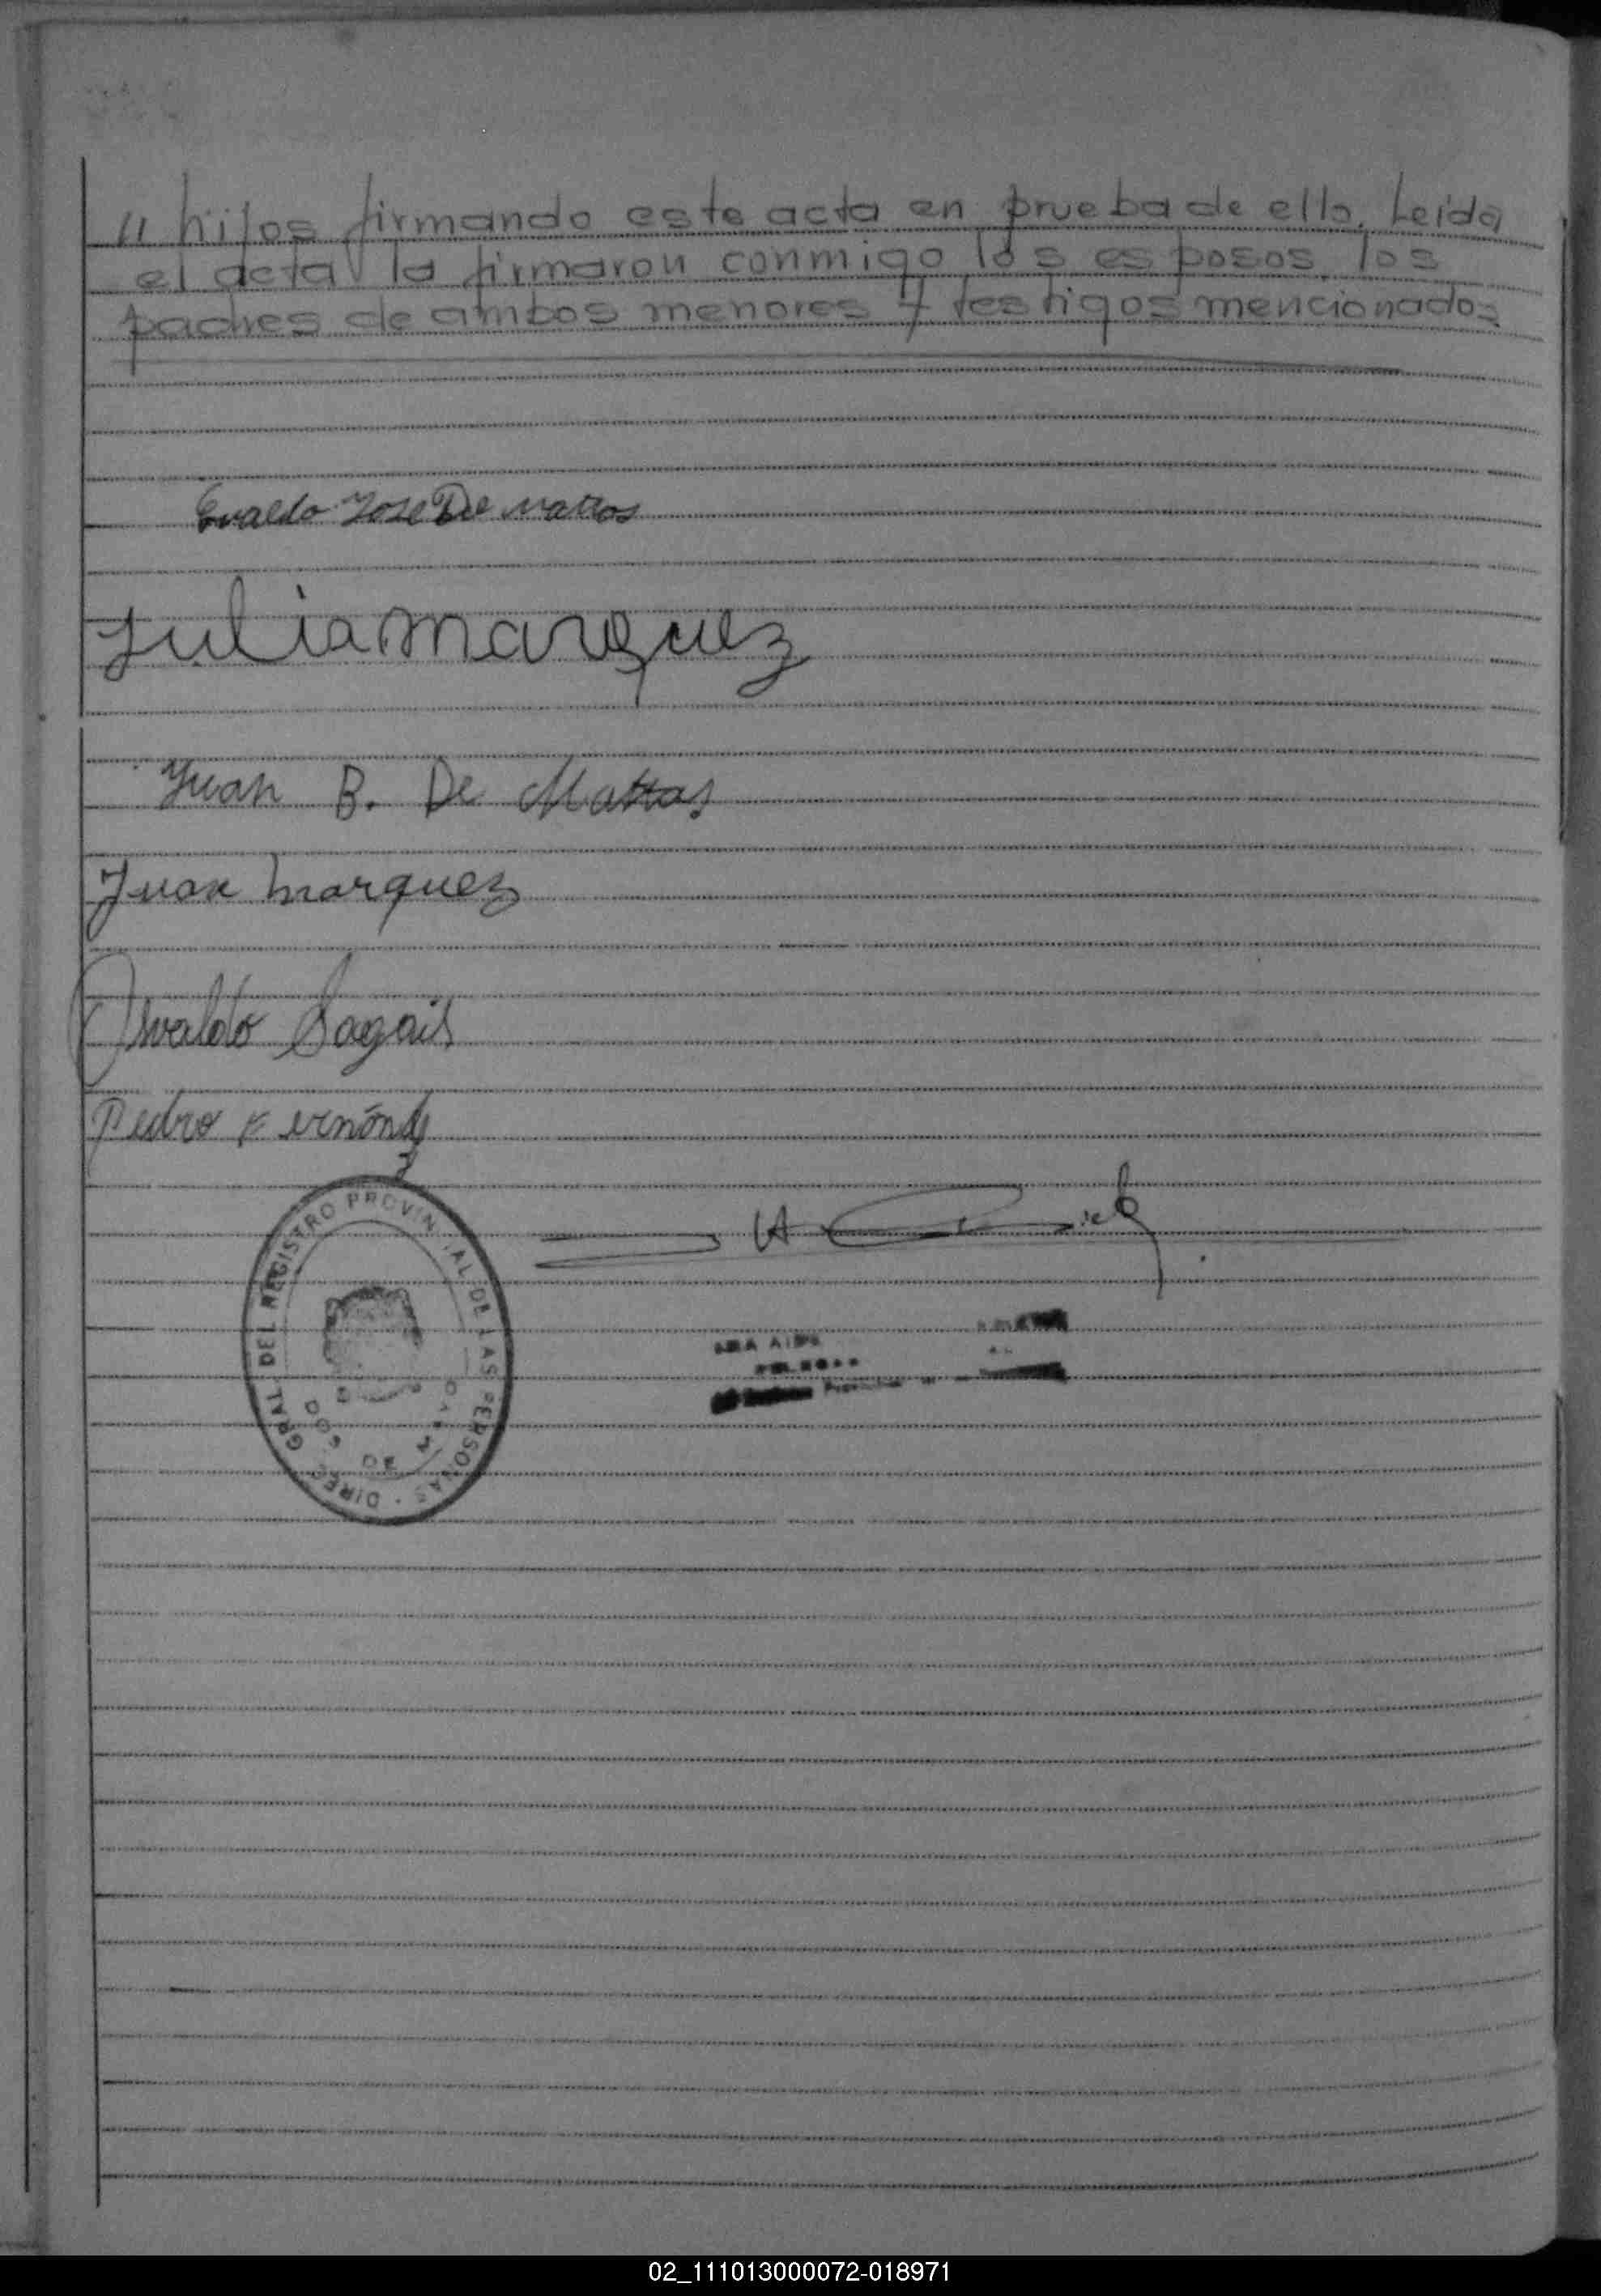 " hijos firmando este acta en prueba de ello. Leída
el acta la firmaron conmigo los esposos, los
padres de ambos menores y testigos mencionados
Evaldo Jose De Mattos
Julia Marquez
Juan B. De Mattos
Juan Marquez
Osvaldo Sagais
Pedro Fernánde
z
DIREC. GRAL. DEL REGISTRO PROVINCIAL DE LAS PERSONAS
02_111013000072-018971